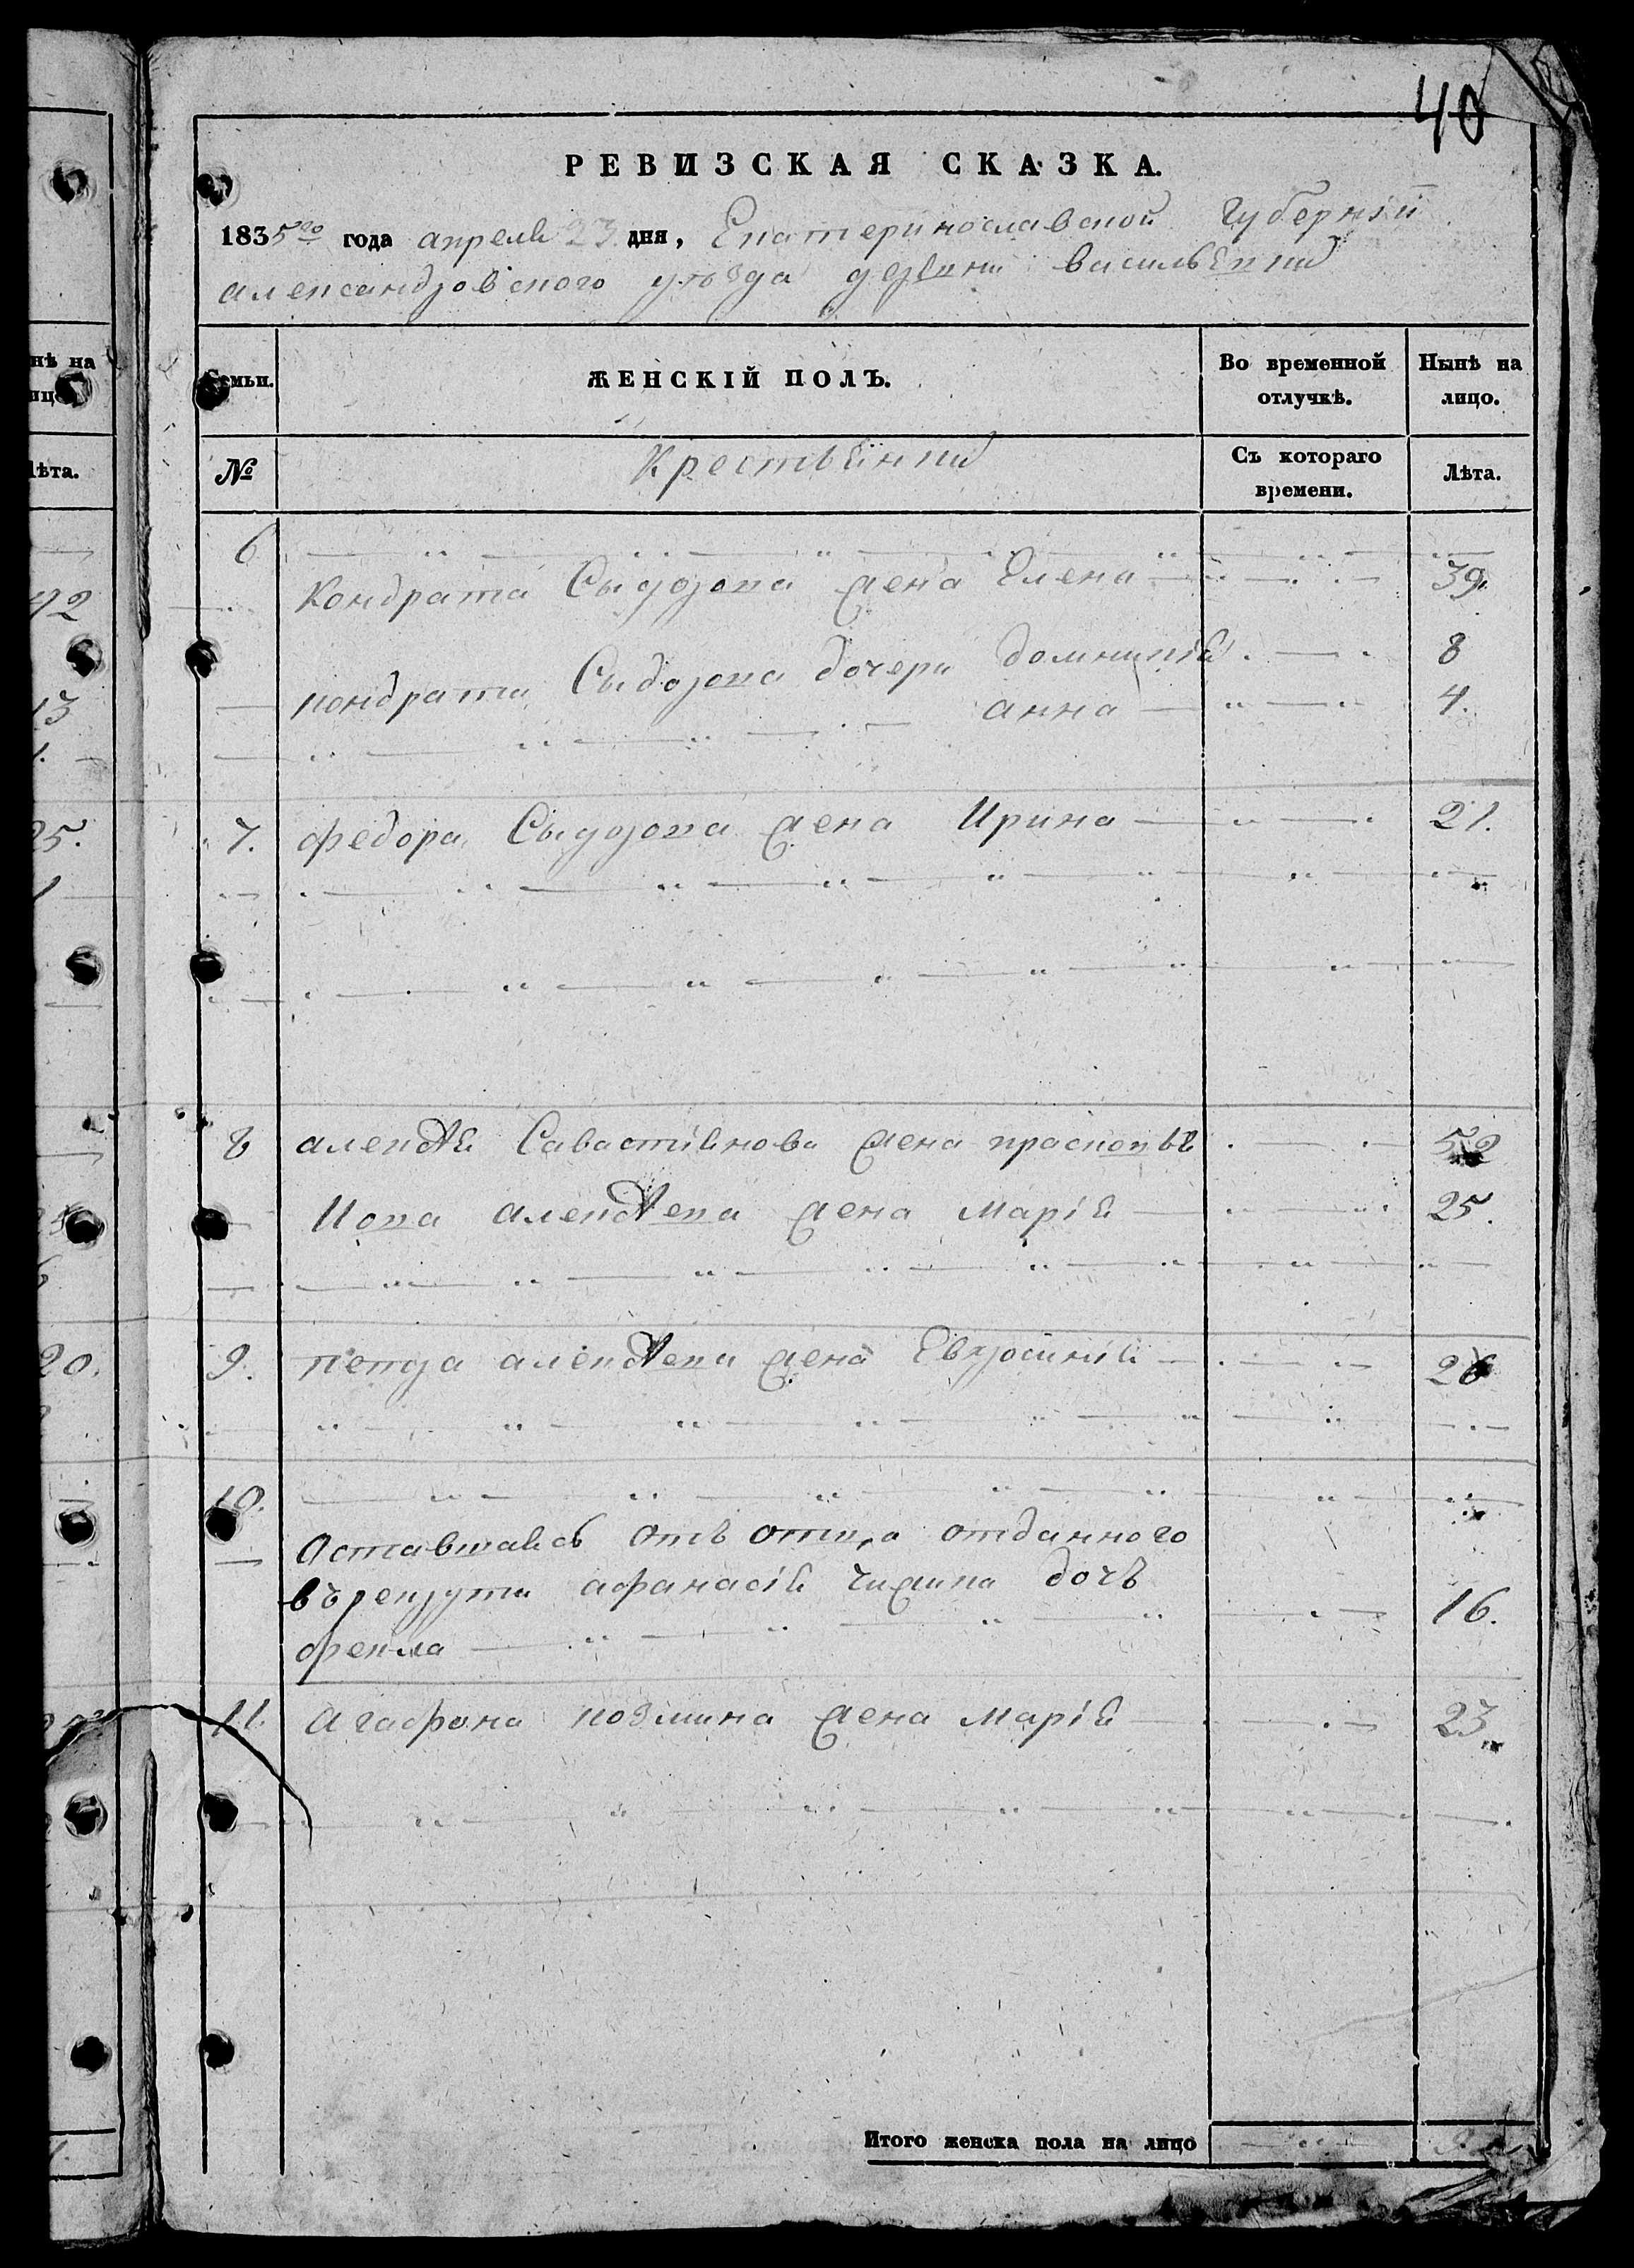 40
РЕВИЗСКАЯ СКАЗКА.
1835го года апреля 23 дня, Екатеринославской Губерніи
александровского уѣзда деревни васильевки
Семьи.
ЖЕНСКІЙ ПОЛЪ.
Во временной отлучкѣ.
Нынѣ на лицо.
№
Крестьянки
Съ котораго времени.
Лѣта.
6
Кондрата Сыдорова жена Елена 39.
кондрата Сыдорова дочери домникія 8
анна 4.
7. федора Сыдорова жена Ирина 21.
8 алексѣя Савастіянова жена прасковья 52
Иова алексѣева жена марія 25.
9. петра алексѣева жена Евросинія 26
10.
Оставшаяся отъ отца отданного
въ рекруты афанасія чижика дочь 16.
фекла
11. Агафона козмина жена марія 23
Итого женска пола на лицо
нѣ на
лѣта.
42
13
25.
20.